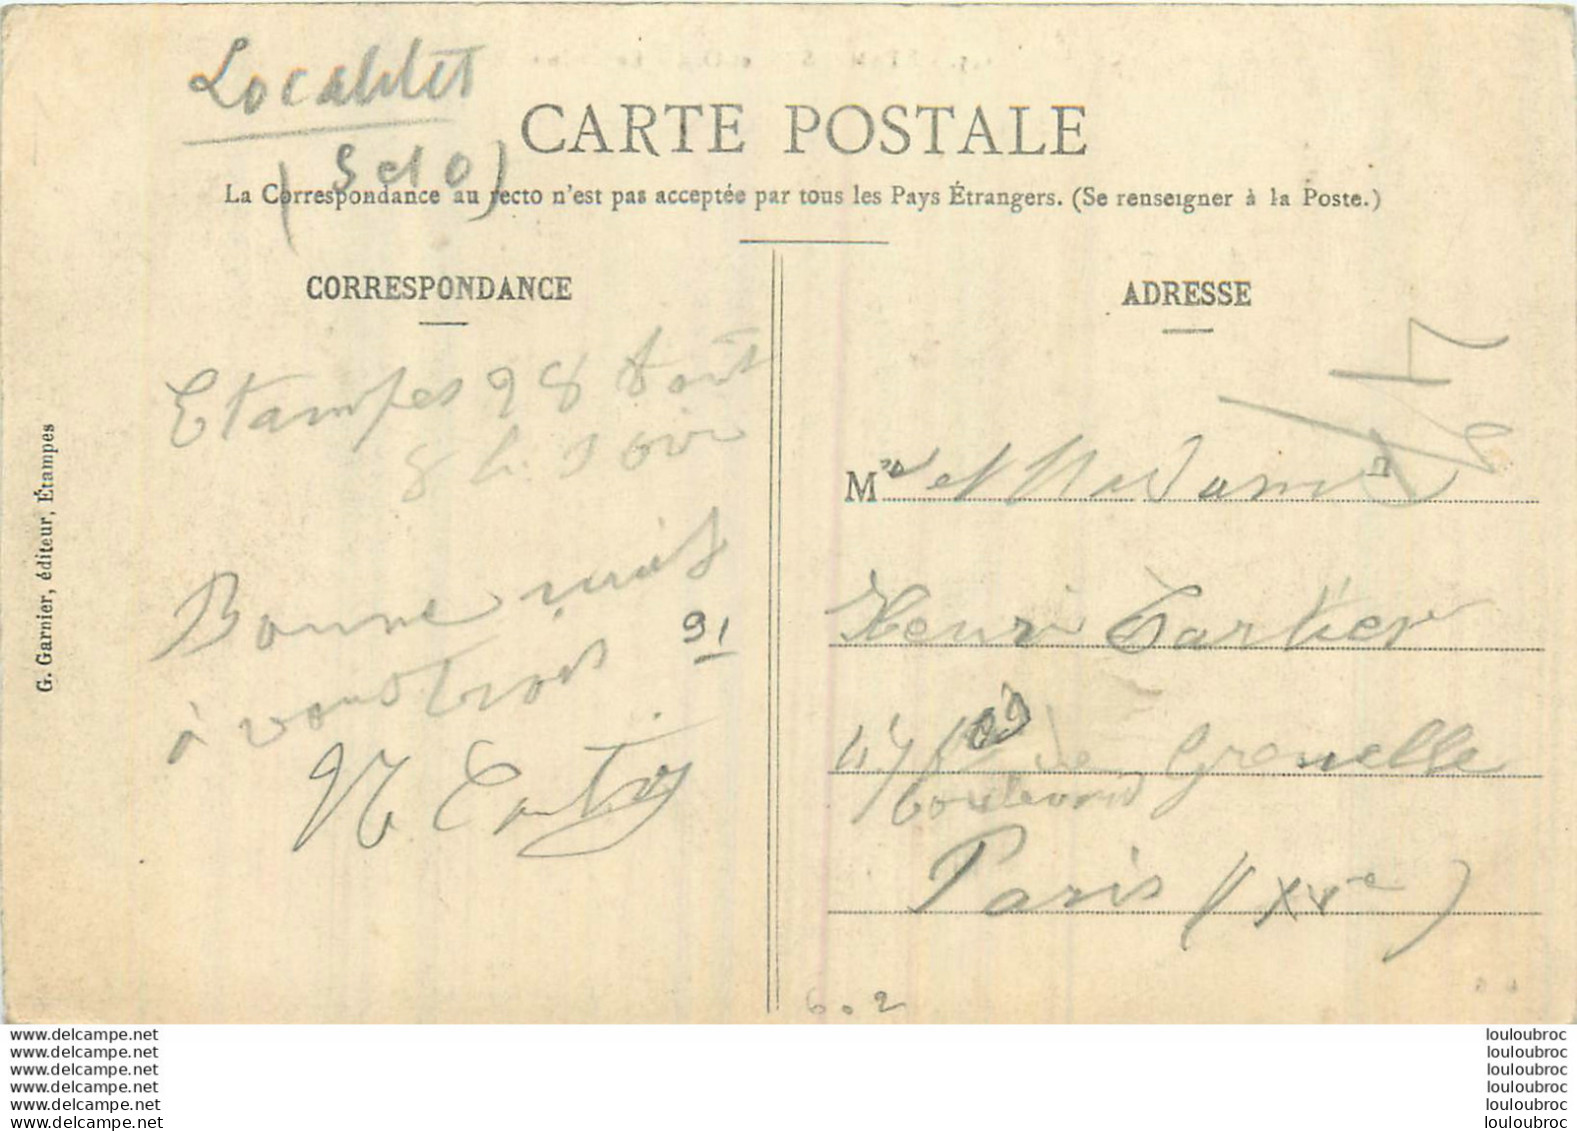 Localités
(S et O)
CARTE POSTALE
La Correspondance au recto n'est pas acceptée par tous les Pays Étrangers. (Se renseigner à la Poste.)
CORRESPONDANCE
Etampes 28 Août
8 h. soir
Bonne nuit
à vous trois
91
G. Garnier, éditeur, Étampes
ADRESSE
M et Madame
Henri Cartier
de Grenelle
boulevard
Paris (XVe)
6.02
www.delcampe.net
www.delcampe.net
www.delcampe.net
www.delcampe.net
www.delcampe.net
www.delcampe.net
louloubroc
louloubroc
louloubroc
louloubroc
louloubroc
louloubroc